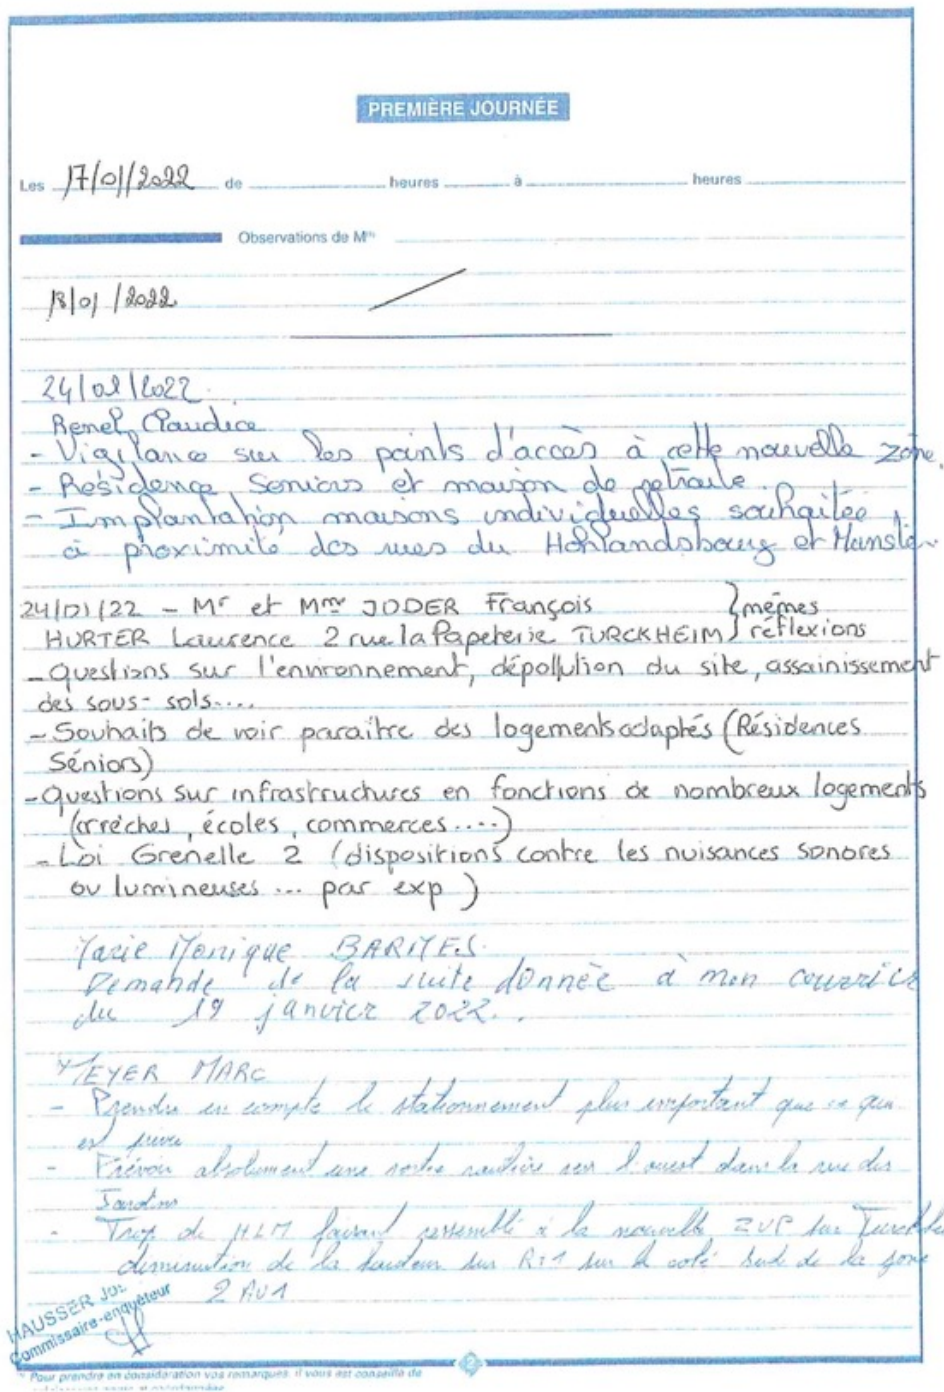 PREMIÈRE JOURNÉE
Les 17/01/2022 de heures à heures
Observations de M
18/01/2022
24/01/2022
Claudice
- Vigilance sur les points d'accès à cette nouvelle zone.
- Résidence Seniors et maison de retraite.
- Implantation maisons individuelles souhaitée
à proximité des rues du Hohlandsbourg et Munster
24/01/22 - Mr et Mme JODER François } mêmes
HURTER Laurence 2 rue la Papeterie TURCKHEIM } réflexions
- Questions sur l'environnement, dépollution du site, assainissement
des sous-sols....
- Souhaits de voir paraître des logements adaptés (Résidences
Séniors)
- Questions sur infrastructures en fonctions de nombreux logements
(crrèches, écoles, commerces....)
- Loi Grenelle 2 (dispositions contre les nuisances sonores
ou lumineuses ... par exp )
Marie Monique
Demande de la suite donnée à mon courrier
du 19 janvier 2022..
MEYER MARC
- Prendre en compte le stationnement plus important que ce qui
est prévu
- Prévoir absolument une sortie routière vers l'ouest dans la rue des
Jardins
- Trop de HLM faisant ressemblé à la nouvelle ZUP sur
diminution de la hauteur sur R+1 sur le coté Sud de la zone
2 AU1
HAUSSER
Commissaire-enquêteur
2
Pour prendre en considération vos remarques, il vous est conseillé de